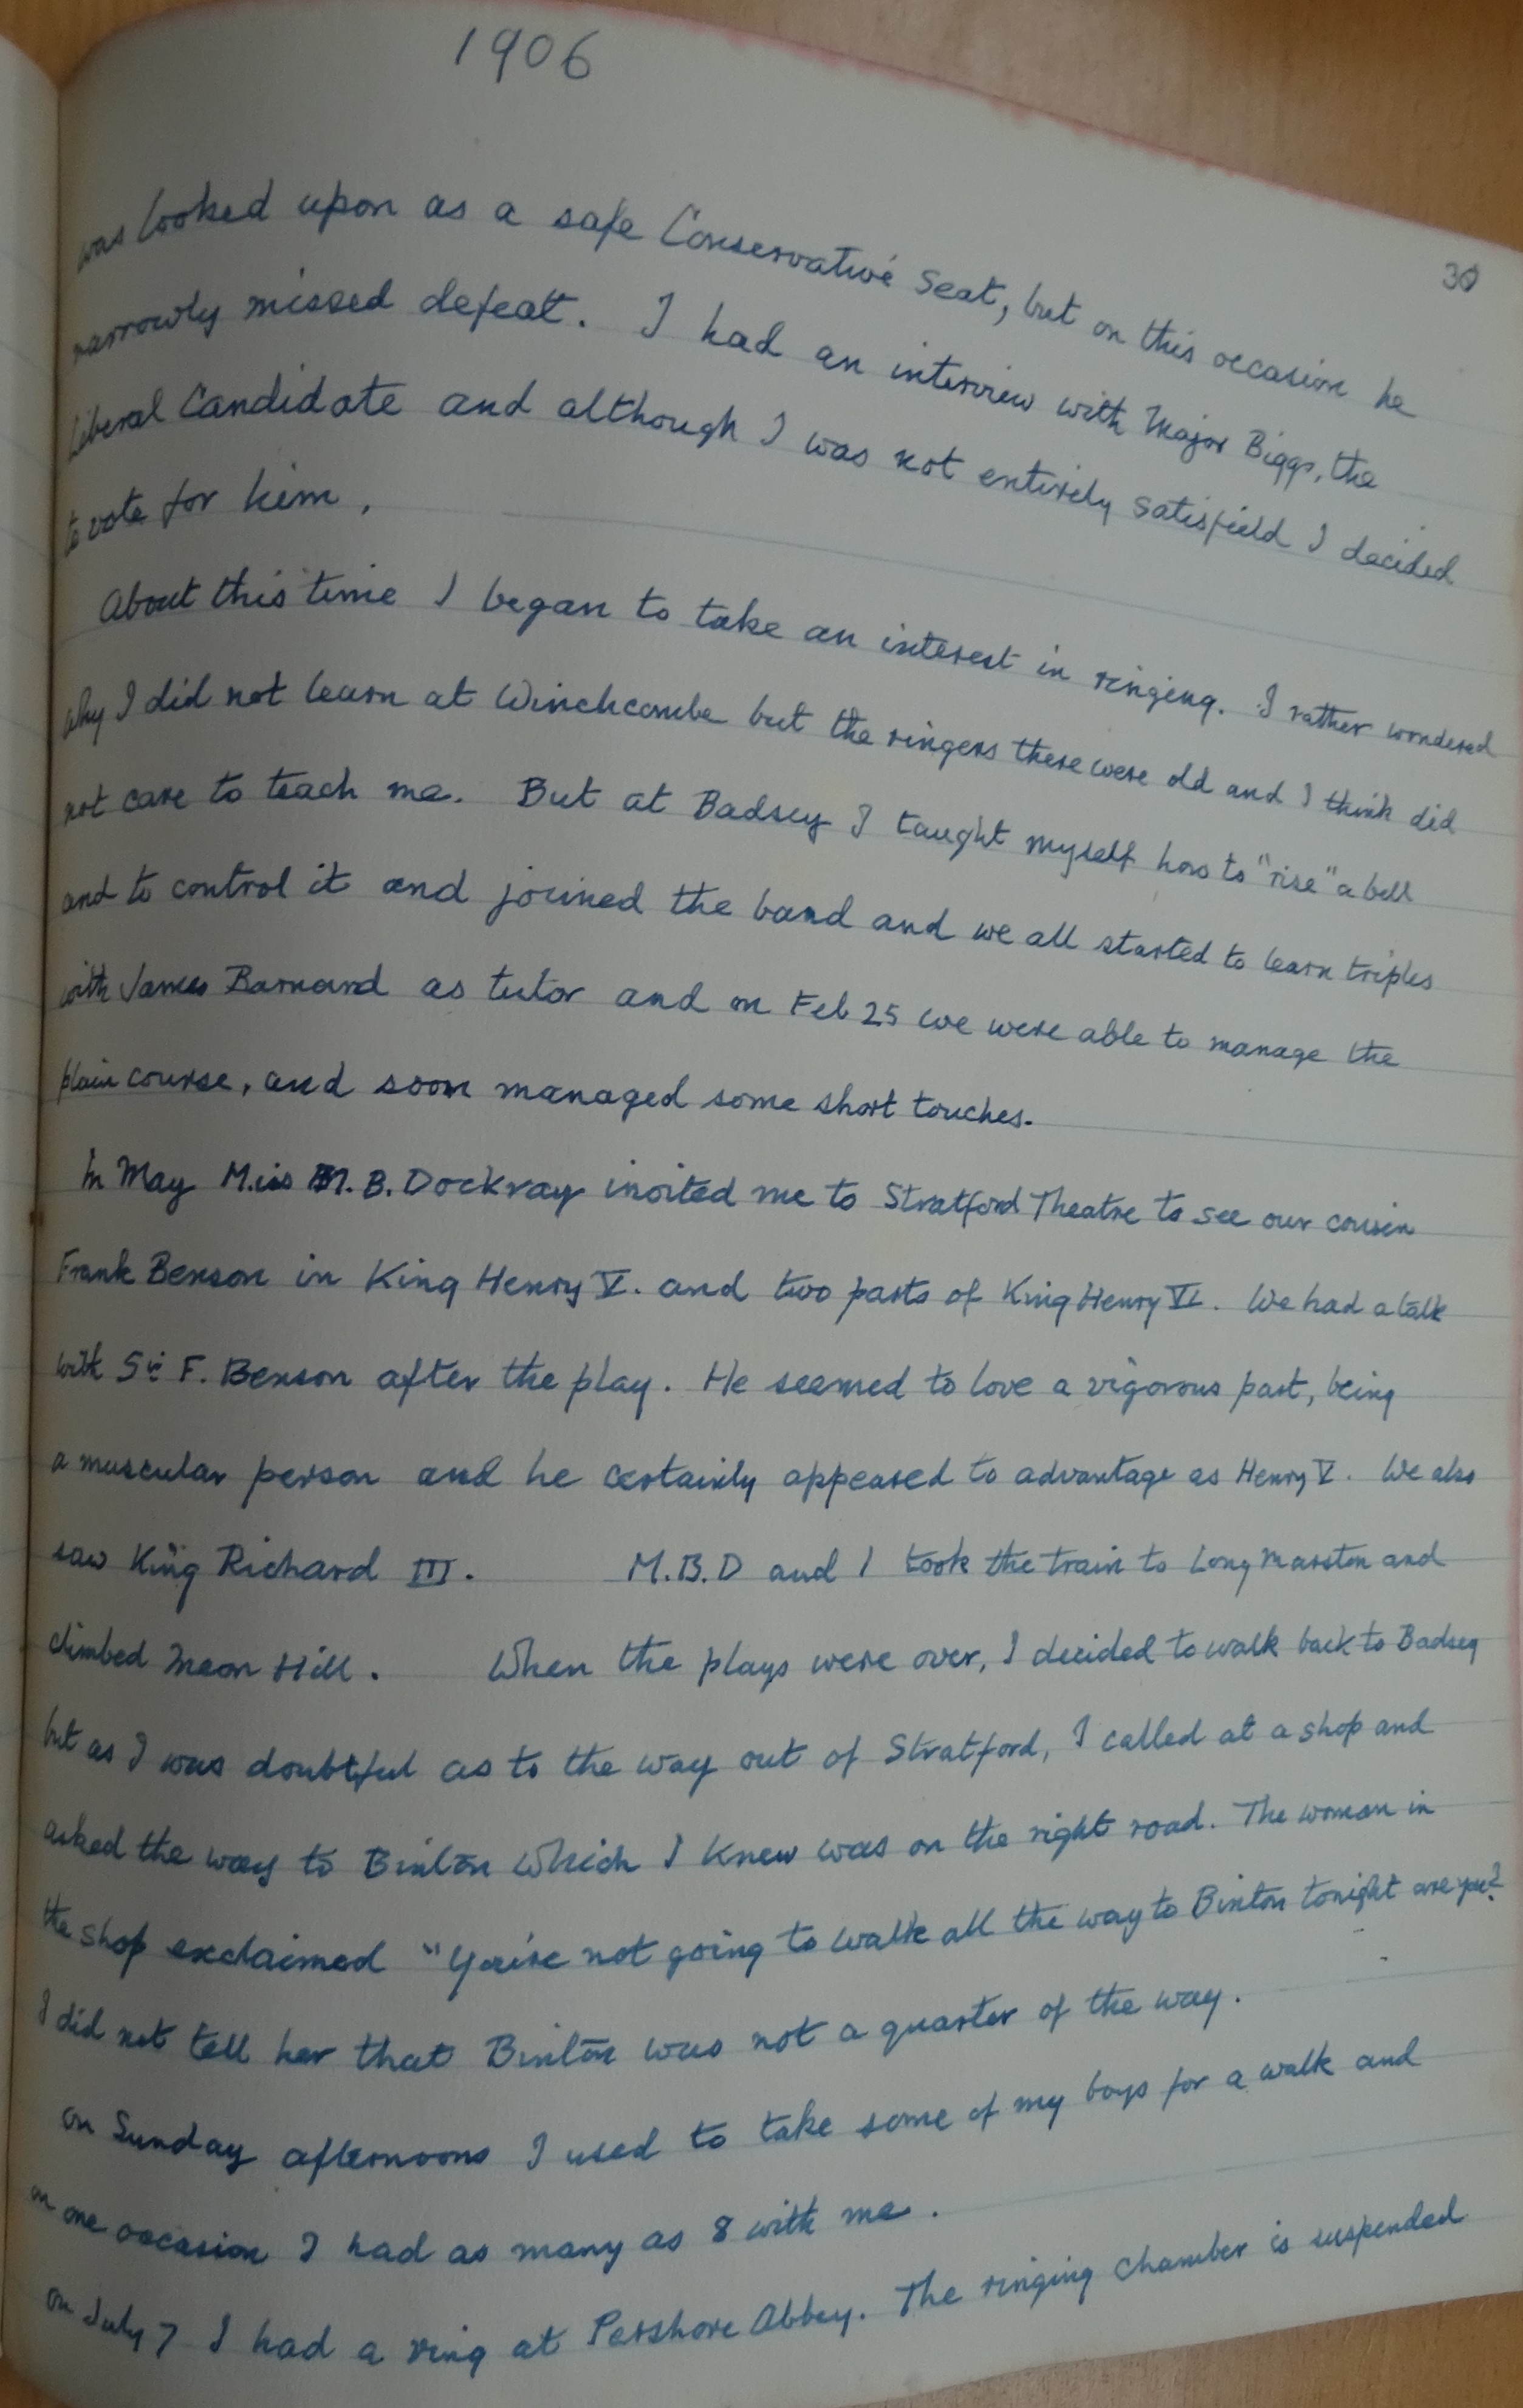 1906
30
was looked upon as a safe Conservative Seat, but on this occasion he
narrowly missed defeat. I had an interview with Major Biggs, the
Liberal Candidate and although I was not entirely satisfield I decided
to vote for him.
About this time I began to take an interest in ringing. I rather wondered
why I did not learn at Winchcombe but the ringers there were old and I think did
not care to teach me. But at Badsey I taught myself how to "rise" a bell
and to control it and joined the band and we all started to learn triples
with James Barnard as tutor and on Feb 25 we were able to manage the
plain course, and soon managed some short touches.
In May Miss M. B. Dockray invited me to Stratford Theatre to see our cousin
Frank Benson in King Henry V. and two parts of King Henry VI. We had a talk
with Sir F. Benson after the play. He seemed to love a vigorous part, being
a muscular person and he certainly appeared to advantage as Henry V. We also
saw King Richard III. M.B.D and I took the train to Long Marston and
climbed Meon Hill. When the plays were over, I decided to walk back to Badsey
but as I was doubtful as to the way out of Stratford, I called at a shop and
asked the way to Binton which I knew was on the right road. The woman in
the shop exclaimed "You're not going to walk all the way to Binton tonight are you?
I did not tell her that Binton was not a quarter of the way.
On Sunday afternoons I used to take some of my boys for a walk and
on one occasion I had as many as 8 with me.
On July 7 I had a ring at Pershore Abbey. The ringing chamber is suspended